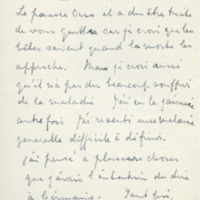 Le pauvre Orso il a du être triste
de vous quitter car je crois que les
bêtes savent quand la morte les
approche. Mais je crois aussi
qu'il n'a pas du beaucoup souffrir
de la maladie. J'ai eu la jaunisse
autre fois J'ai resenti une malaise
generalle difficile à définir.
J'ai pensé a plusieurs choses
que j'avais l'intention de dire
à Germaine. Tant pis,